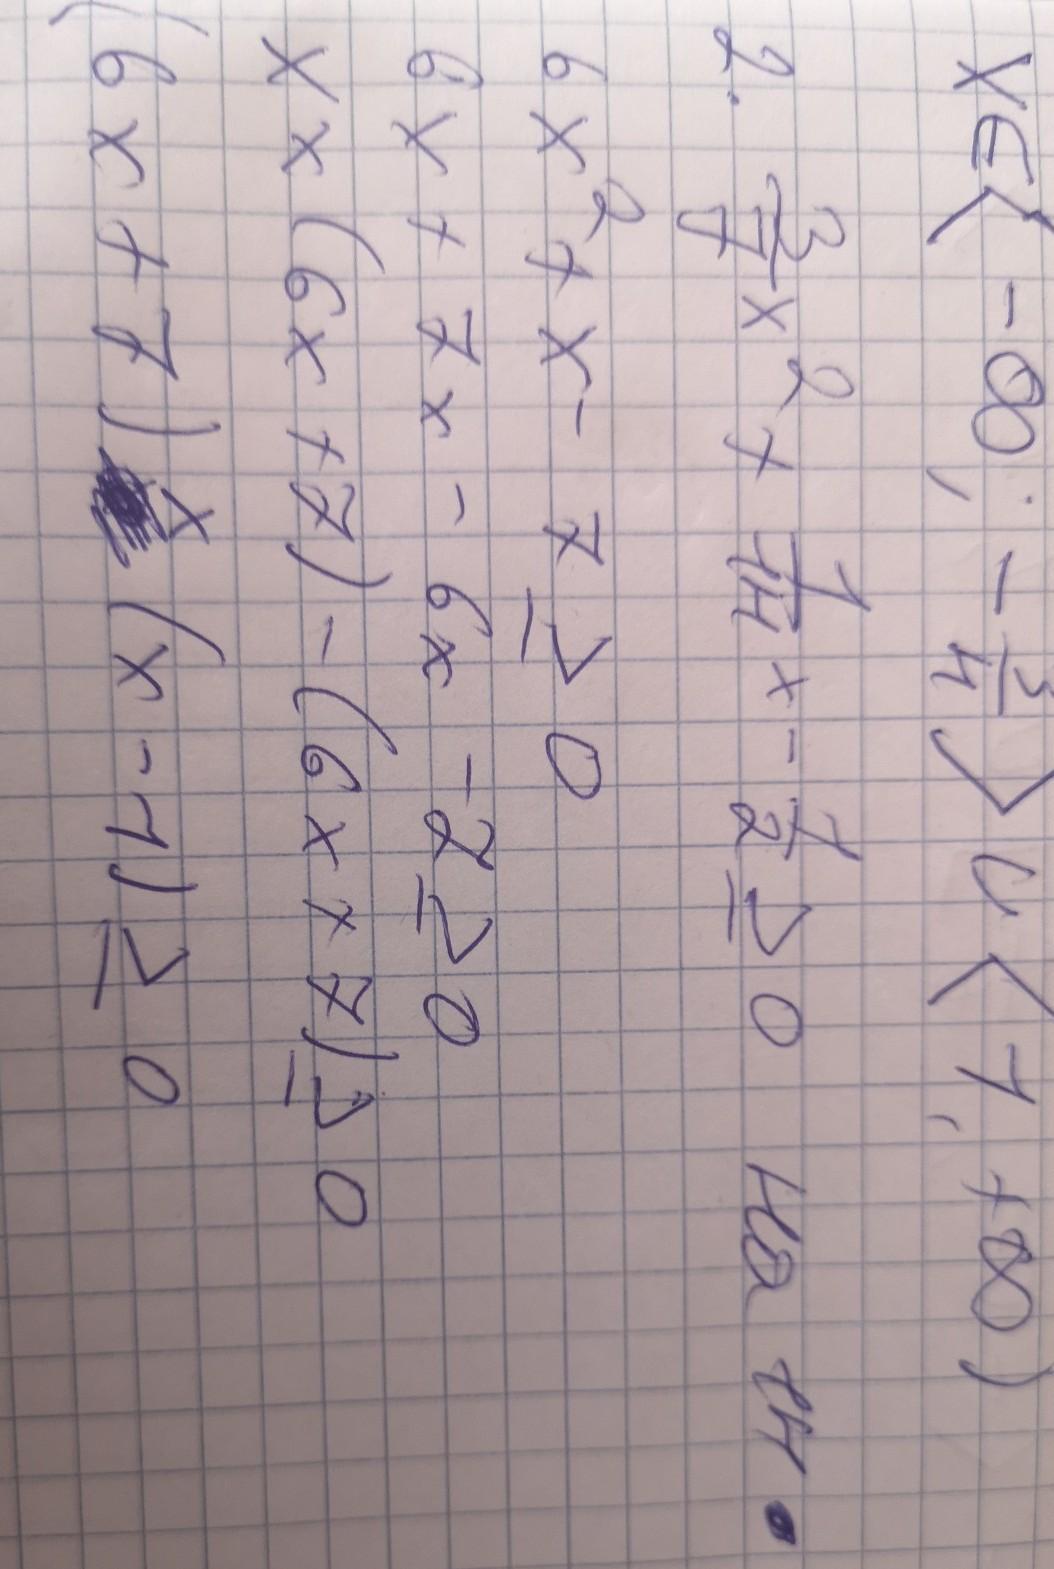 x∈⟨-∞; -3/4⟩ ∪ ⟨1, +∞)
2. 3/7 x² + 1/14 x - 1/2 ≥ 0 на 14.
6x² + x - 7 ≥ 0
6x + 7x - 6x - 7 ≥ 0
x x (6x+7) - (6x+7) ≥ 0
(6x+7) x (x-1) ≥ 0